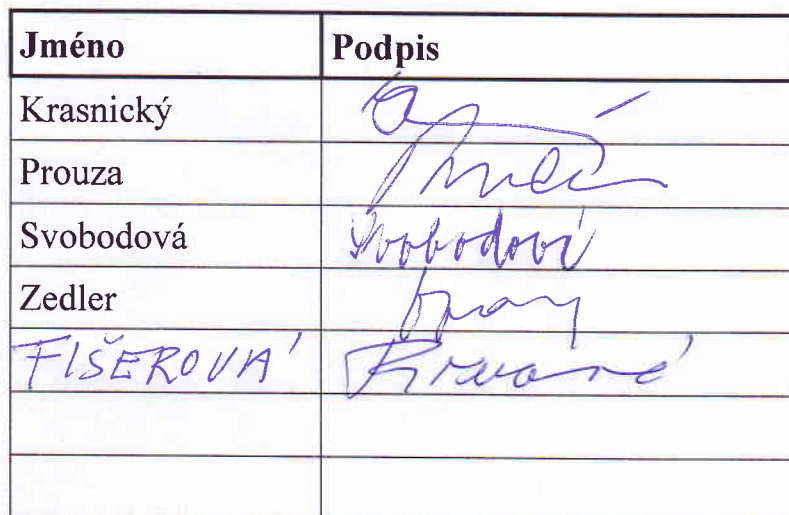 Jméno Podpis
Krasnický
Prouza
Svobodová Svobodová
Zedler
FIŠEROVÁ